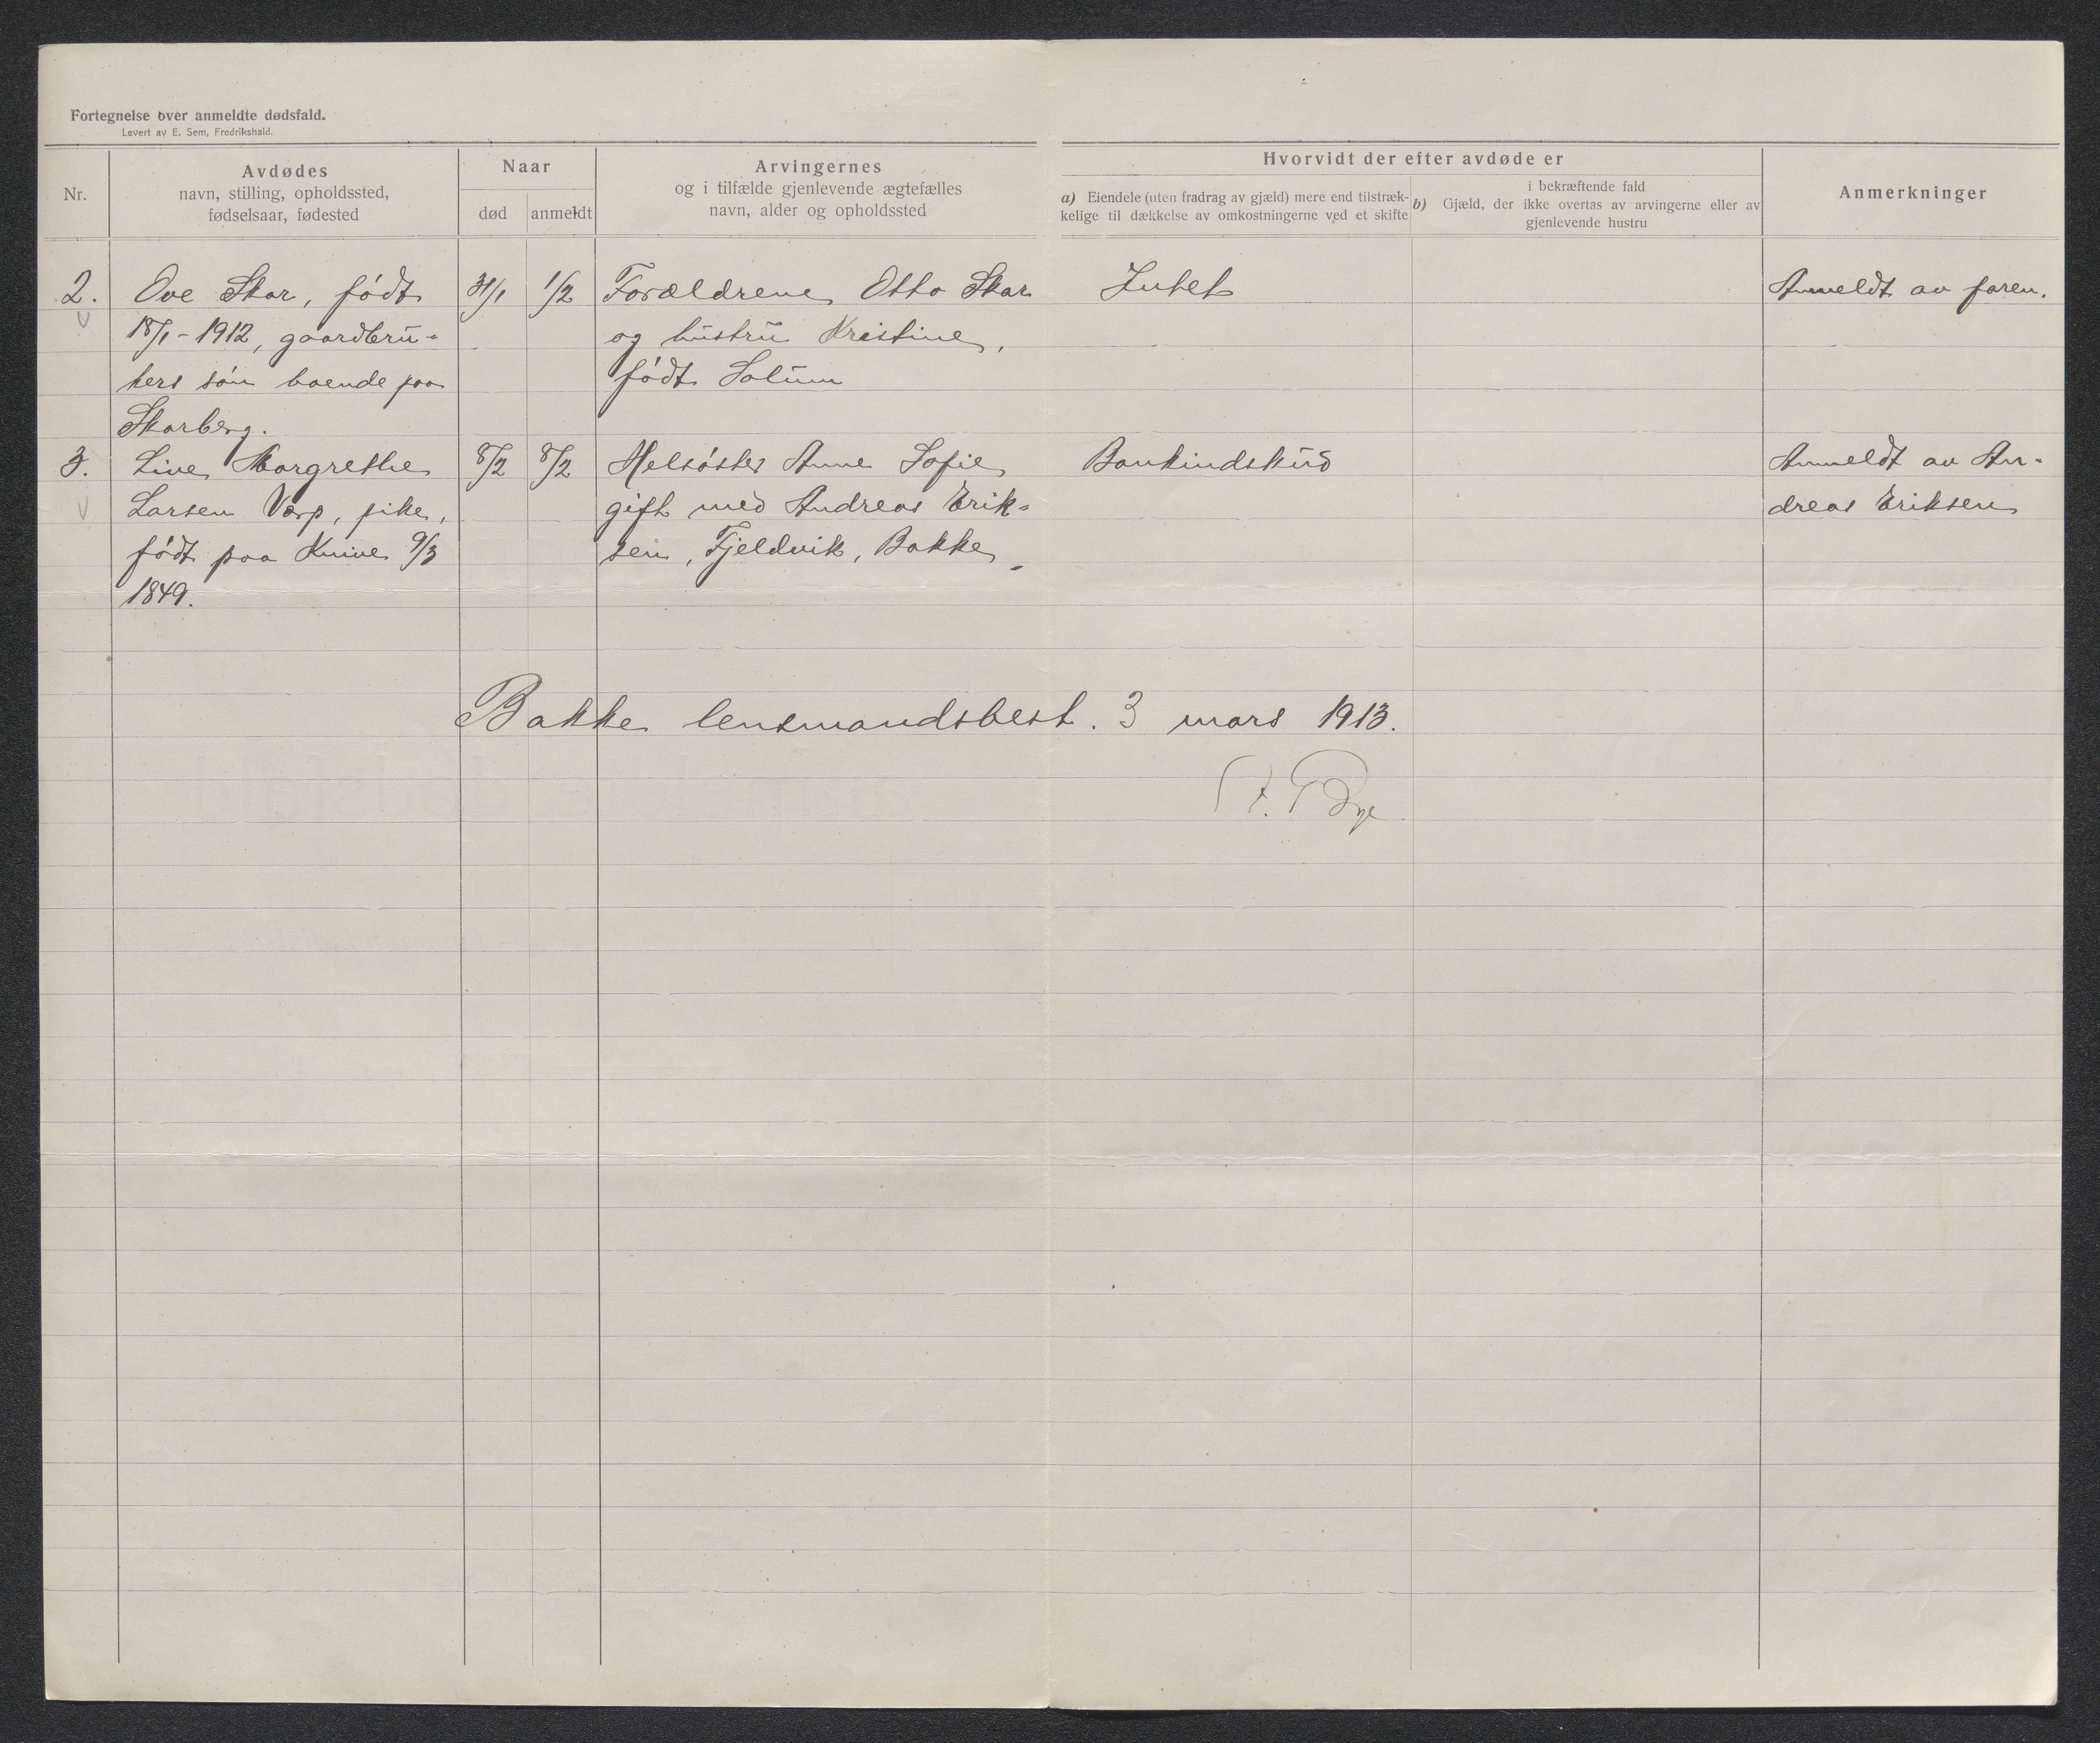 Fortegnelse over anmeldte dødsfald.
Levert av E. Sem, Fredrikshald.
Nr.
Avdødes
navn, stilling, opholdssted,
fødselsaar, fødested
Naar
død
anmeldt
Arvingernes
og i tilfælde gjenlevende ægtefælles
navn, alder og opholdssted
Hvorvidt der efter avdøde er
a) Eiendele (uten fradrag av gjæld) mere end tilstræk-
kelige til dækkelse av omkostningerne ved et skifte
i bekræftende fald
b) Gjæld, der ikke overtas av arvingerne eller av
gjenlevende hustru
Anmerkninger
2.
Ove Skar, født
18/1 - 1912, gaardbru-
kers søn boende paa
Skarberg.
31/1
1/2
Forældrene Otto Skar
og hustru Kristine,
født Solum
Intet
Anmeldt av faren.
3.
Line Margrethe
Larsen Værp, pike,
født paa Knive 9/3
1849.
8/2
8/2
Helsøster Anne Sofie
gift med Andreas Erik-
sen, Fjeldvik, Bakke
Bankindskud
Anmeldt av An-
dreas Eriksen
Bakke lensmandsbest. 3 mars 1913.